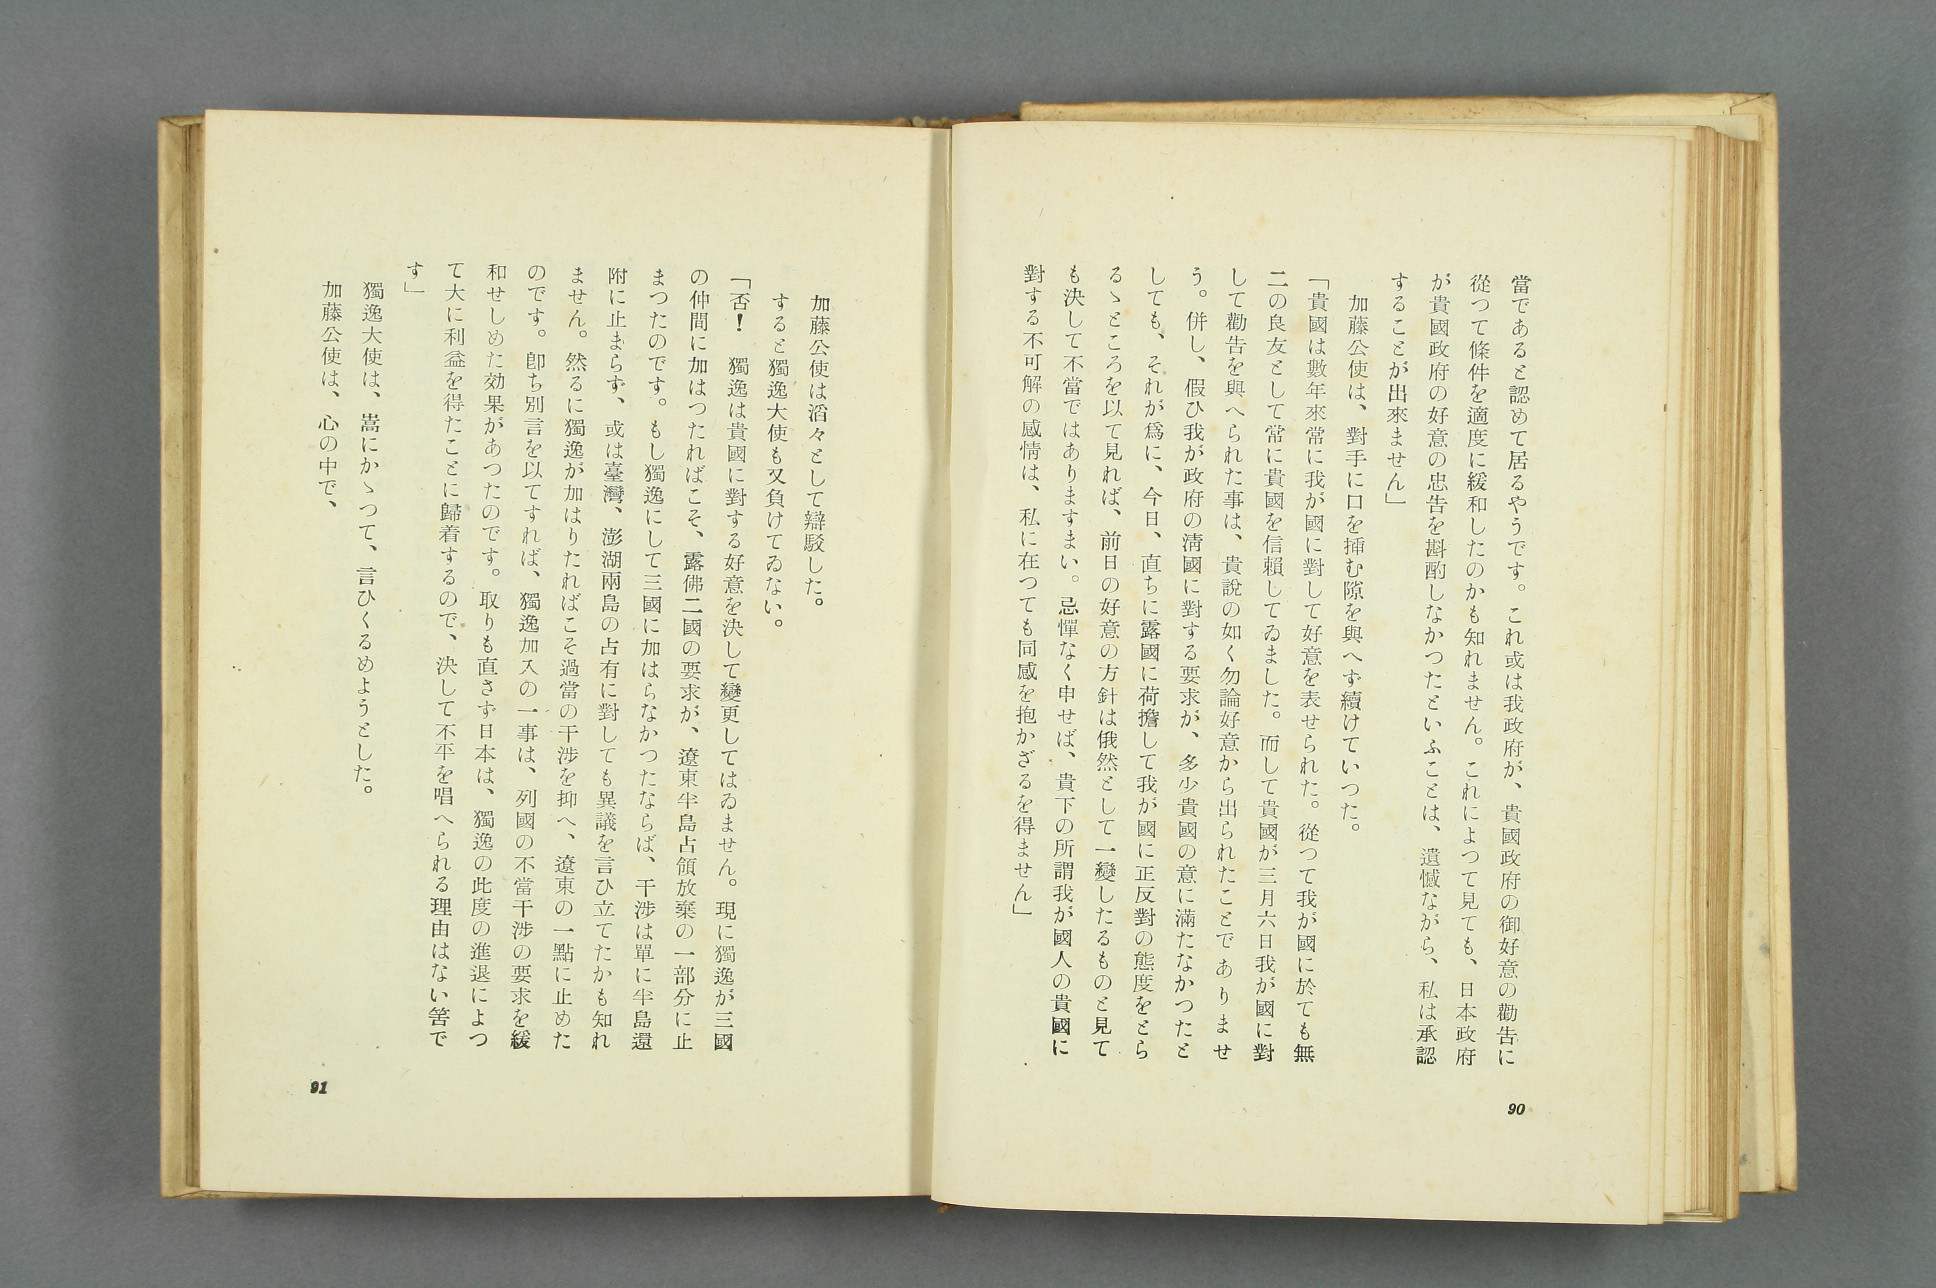 當であると認めて居るやうです。これ或は我政府が、貴國政府の御好意の勸告に
從つて條件を適度に緩和したのかも知れません。これによつて見ても、日本政府
が貴國政府の好意の忠告を斟酌しなかつたといふことは、遺憾ながら、私は承認
することが出來ません」
加藤公使は、對手に口を挿む隙を與へず續けていつた。
「貴國は數年來常に我が國に對して好意を表せられた。從つて我が國に於ても無
二の良友として常に貴國を信賴してゐました。而して貴國が三月六日我が國に對
して勸告を與へられた事は、貴說の如く勿論好意から出られたことでありませ
う。併し、假ひ我が政府の淸國に對する要求が、多少貴國の意に滿たなかつたと
しても、それが爲に、今日、直ちに露國に荷擔して我が國に正反對の態度をとら
るゝところを以て見れば、前日の好意の方針は俄然として一變したるものと見て
も決して不當ではありますまい。忌憚なく申せば、貴下の所謂我が國人の貴國に
對する不可解の感情は、私に在つても同感を抱かざるを得ません」
90
加藤公使は滔々として辯駁した。
すると獨逸大使も又負けてゐない。
「否！　獨逸は貴國に對する好意を決して變更してはゐません。現に獨逸が三國
の仲間に加はつたればこそ、露佛二國の要求が、遼東半島占領放棄の一部分に止
まつたのです。もし獨逸にして三國に加はらなかつたならば、干涉は單に半島還
附に止まらず、或は臺灣、澎湖兩島の占有に對しても異議を言ひ立てたかも知れ
ません。然るに獨逸が加はりたればこそ過當の干涉を抑へ、遼東の一點に止めた
のです。卽ち別言を以てすれば、獨逸加入の一事は、列國の不當干涉の要求を緩
和せしめた効果があつたのです。取りも直さず日本は、獨逸の此度の進退によつ
て大に利益を得たことに歸着するので、決して不平を唱へられる理由はない筈で
す」
獨逸大使は、嵩にかゝつて、言ひくるめようとした。
加藤公使は、心の中で、
91